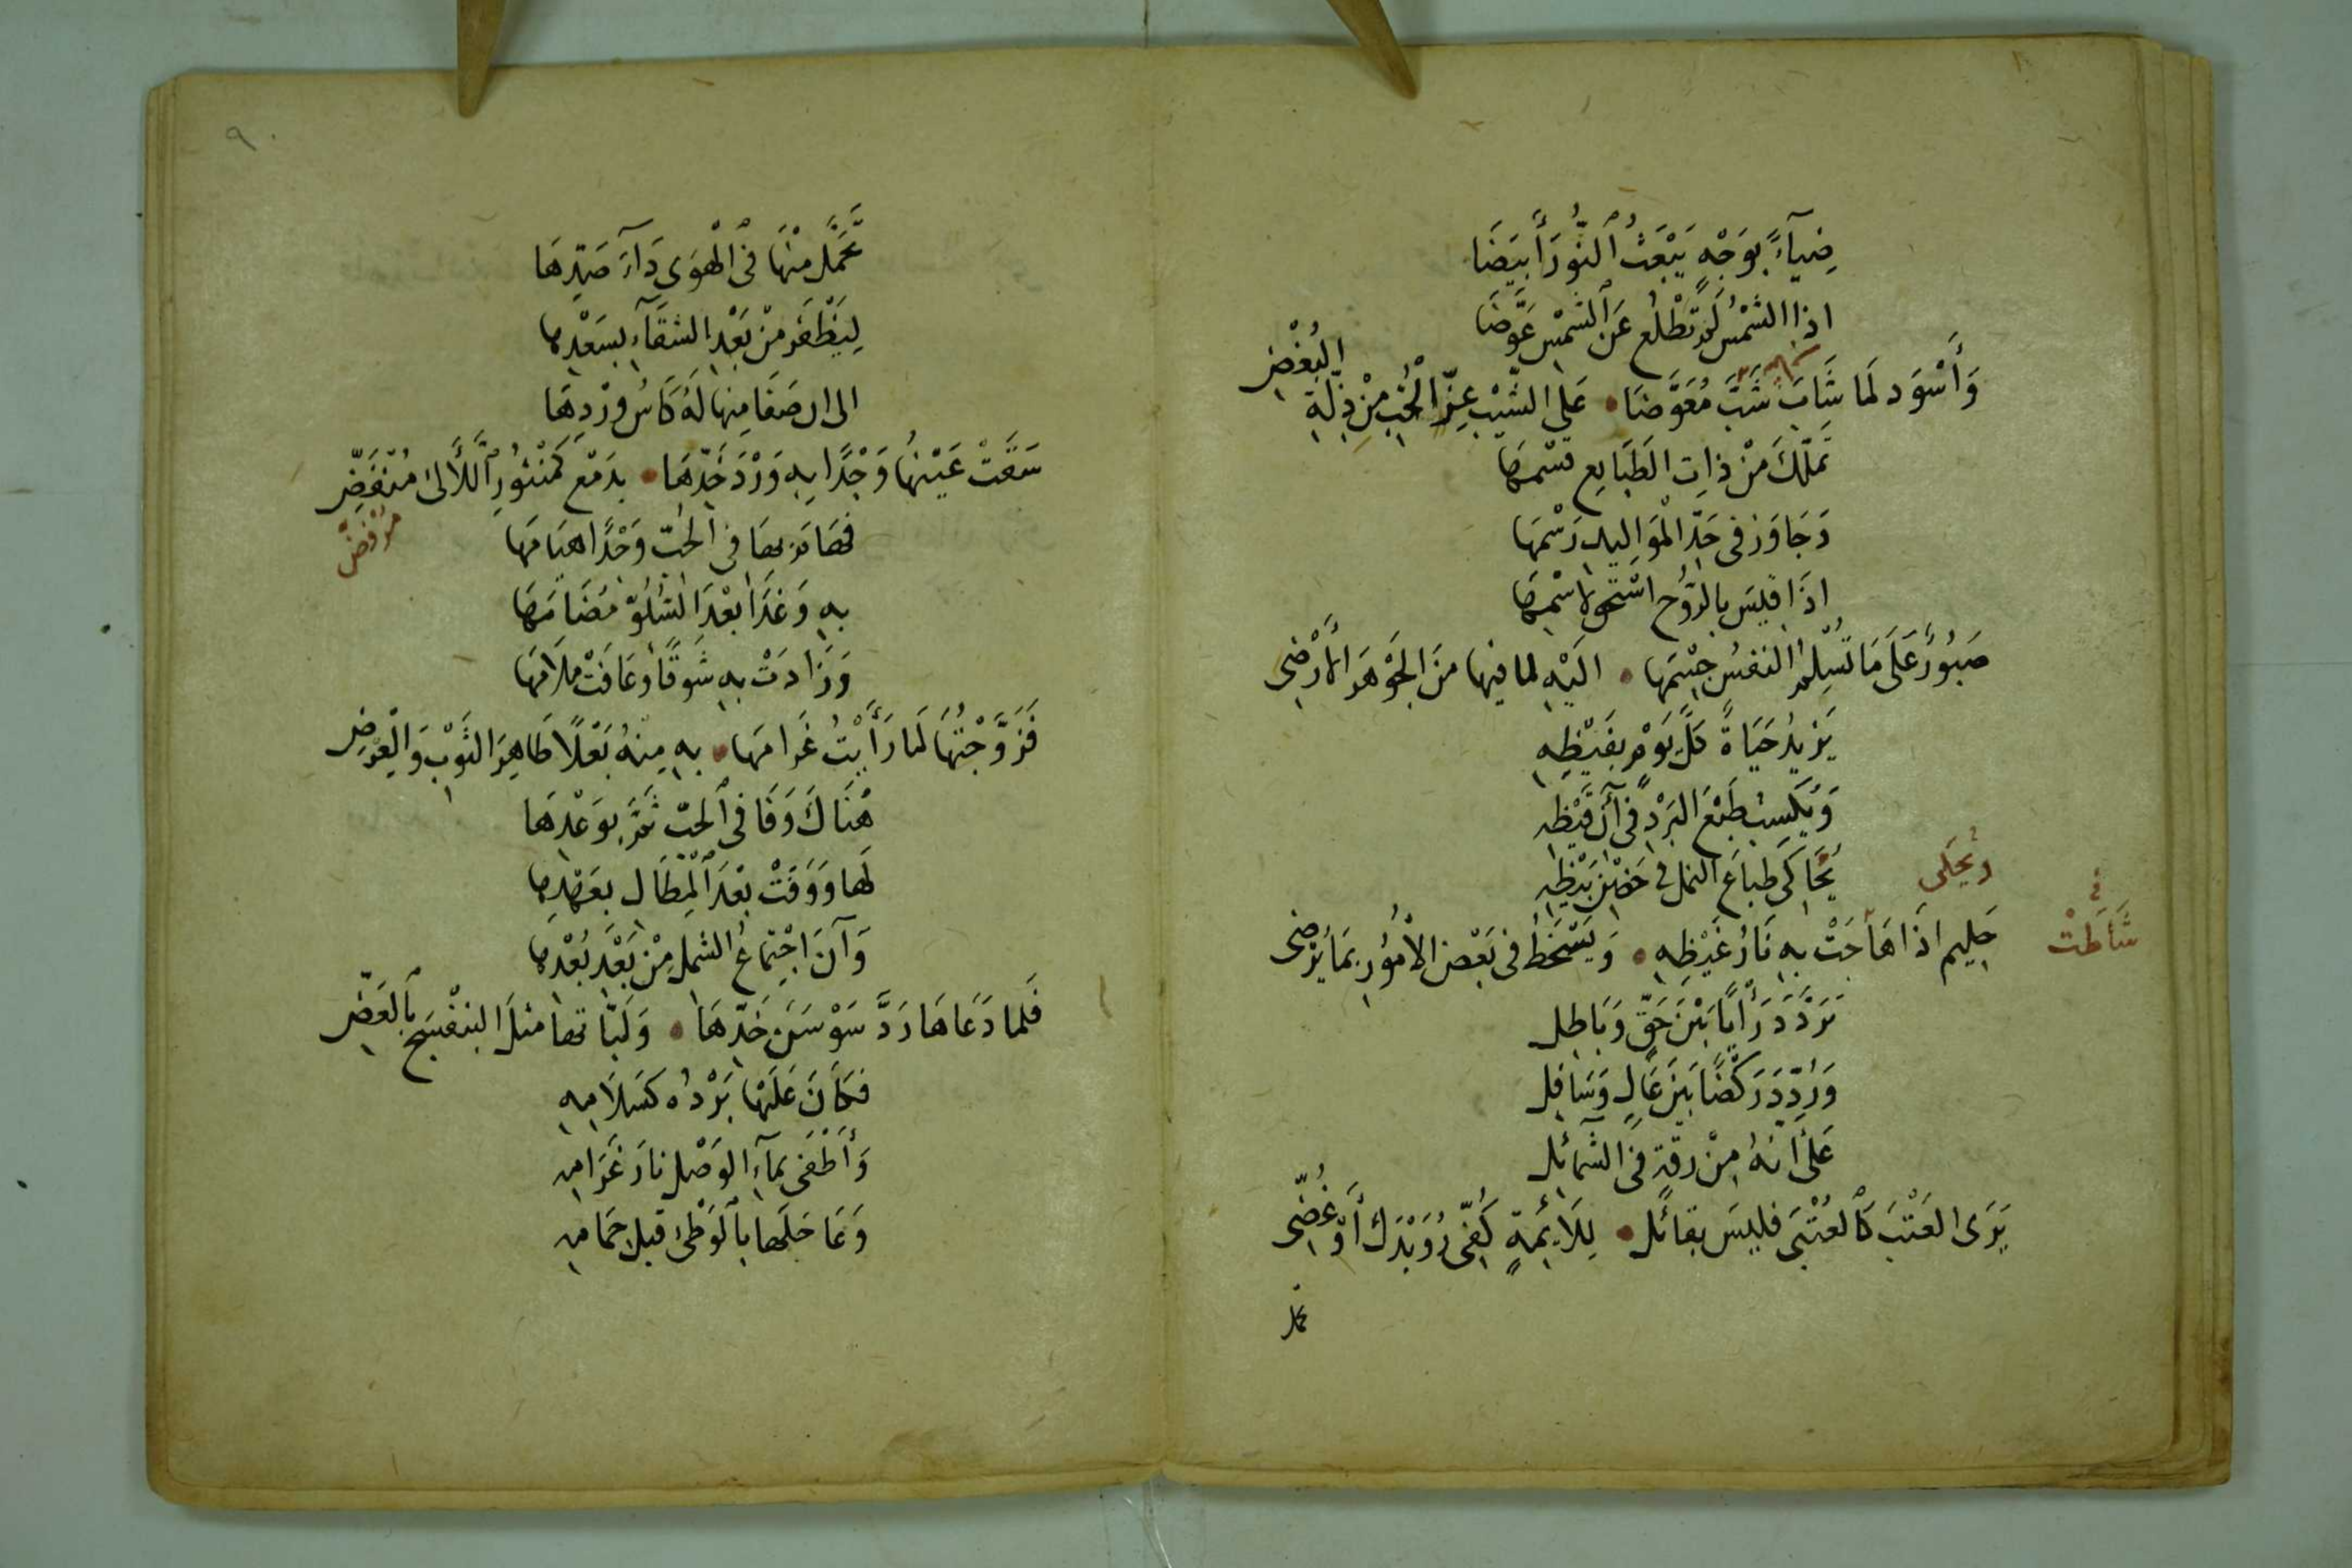 ضِيَآءً بِوَجْهٍ يَبْعَثُ ٱلنُّورَ أَبْيَضَا
اذا الشمْسُ لَمْ تَطْلُع عَنِ ٱلشمْسِ عَوَّضَا
وَأَسْوَد لَما شَابَ شَبَّ مُعَوَّضَا • عَلى الشَيْبِ عِزَّ الْحُبِّ مِنْ ذِلَّةِ البُغْضِ
تَملّكَ مِنْ ذاتِ الطَبَايعِ قسْمهَا
وَجَاوَز فى حَدِّ الْمَوَاليدِ رَسْمَهَا
اذَا قِيسَ بالرّوُح اسْتَحق اسْمهَا
صَبُورٌ عَلَى مَا تُسْلِمُ النفسُ جِسْمَها • اليْهِ لما فيها منَ الجَوْهَرِ الأرْضِى
يَزيدُ حَيَاةً كلَّ يَوْمٍ بفَيْظِهِ
وَيُكسِبُ طَبْعَ البَرْدِ فى آنِ قَيْظِهِ
يُحَاكى طباعَ النمل فى حَضْنِ بَيْظِهِ
وَيحكى
حَلِيم اذَا هَاجَتْ بهِ نَارُ غَيْظِهِ • وَيَسْخَطُ فى بَعْضِ الأمُورِ بمَا يُرْضِى
شَاطَتْ
تَرَدَّدَ رَأْيًا بَيْنَ حَقٍّ وَبَاطِلِ
وَرُدِّدَ رَكْضًا بَيْنَ عَالٍ وَسَافِلِ
عَلى أنهُ مِنْ رقةٍ فى الشمآئلِ
يَرَى العَتْبَ كَالعُتْبَى فليسَ بقائلِ • لِلَائِمَةٍ كُفِّى رُوَيْدَكِ أوْ غُضِّى
تحمل
٩
تَحَمَّلَ مِنْهَا فى ٱلْهَوَى دَآءَ صَدِّهَا
لِيَظْفَرَ مِنْ بَعْدِ الشقَآءِ بسَعْدِها
الى ان صَفَا مِنها لَهُ كَاسُ وِرْدِهَا
سَقَتْ عَيْنهُا وَجْدًا بهِ وَرْدَ خَدِّهَا • بدَمْعٍ كَمَنْثُورِ ٱللَّآلىْ مُنْفَضِّ
مُرْفَضِّ
فصَامَر بها فى الحُبّ وَجْدًا هيَامَهَا
بهِ وَغَدَا بعْدَ السُلُوِّ مضَامَهَا
وَزَادَتْ بهِ شَوقًا وَعَافَتْ مَلَامَهَا
فَزَوَّجْتُهَا لَما رَأَيْتُ غَرَامَهَا • بهِ مِنهُ بَعْلًا طَاهِرَ الثَوْبِ وَالْعِرْضِ
هُنَاكَ وَفَا فى ٱلحُبّ ثَمَّ بوَعْدِهَا
لهَا وَوَفَتْ بعْدَ ٱلْمِطَالِ بعَهْدِها
وَآنَ اجْتِمَاعُ الشمل مِنْ بَعْدِ بُعْدِها
فَلما دَعَاهَا رَدَّ سَوْسَنَ خَدِّهَا • وَلَبَّاتها مثلَ البنفْسَجِ بٱلعَضِّ
فكَانَ عَلَيْهَا بَرْدُه كَسَلَامِهِ
وَأَطْفَى بمَآءِ الوَصْلِ نارَ غَرَامِهِ
وَعَاجَلَها بٱلوَطْئ قبلَ حمَامِهِ